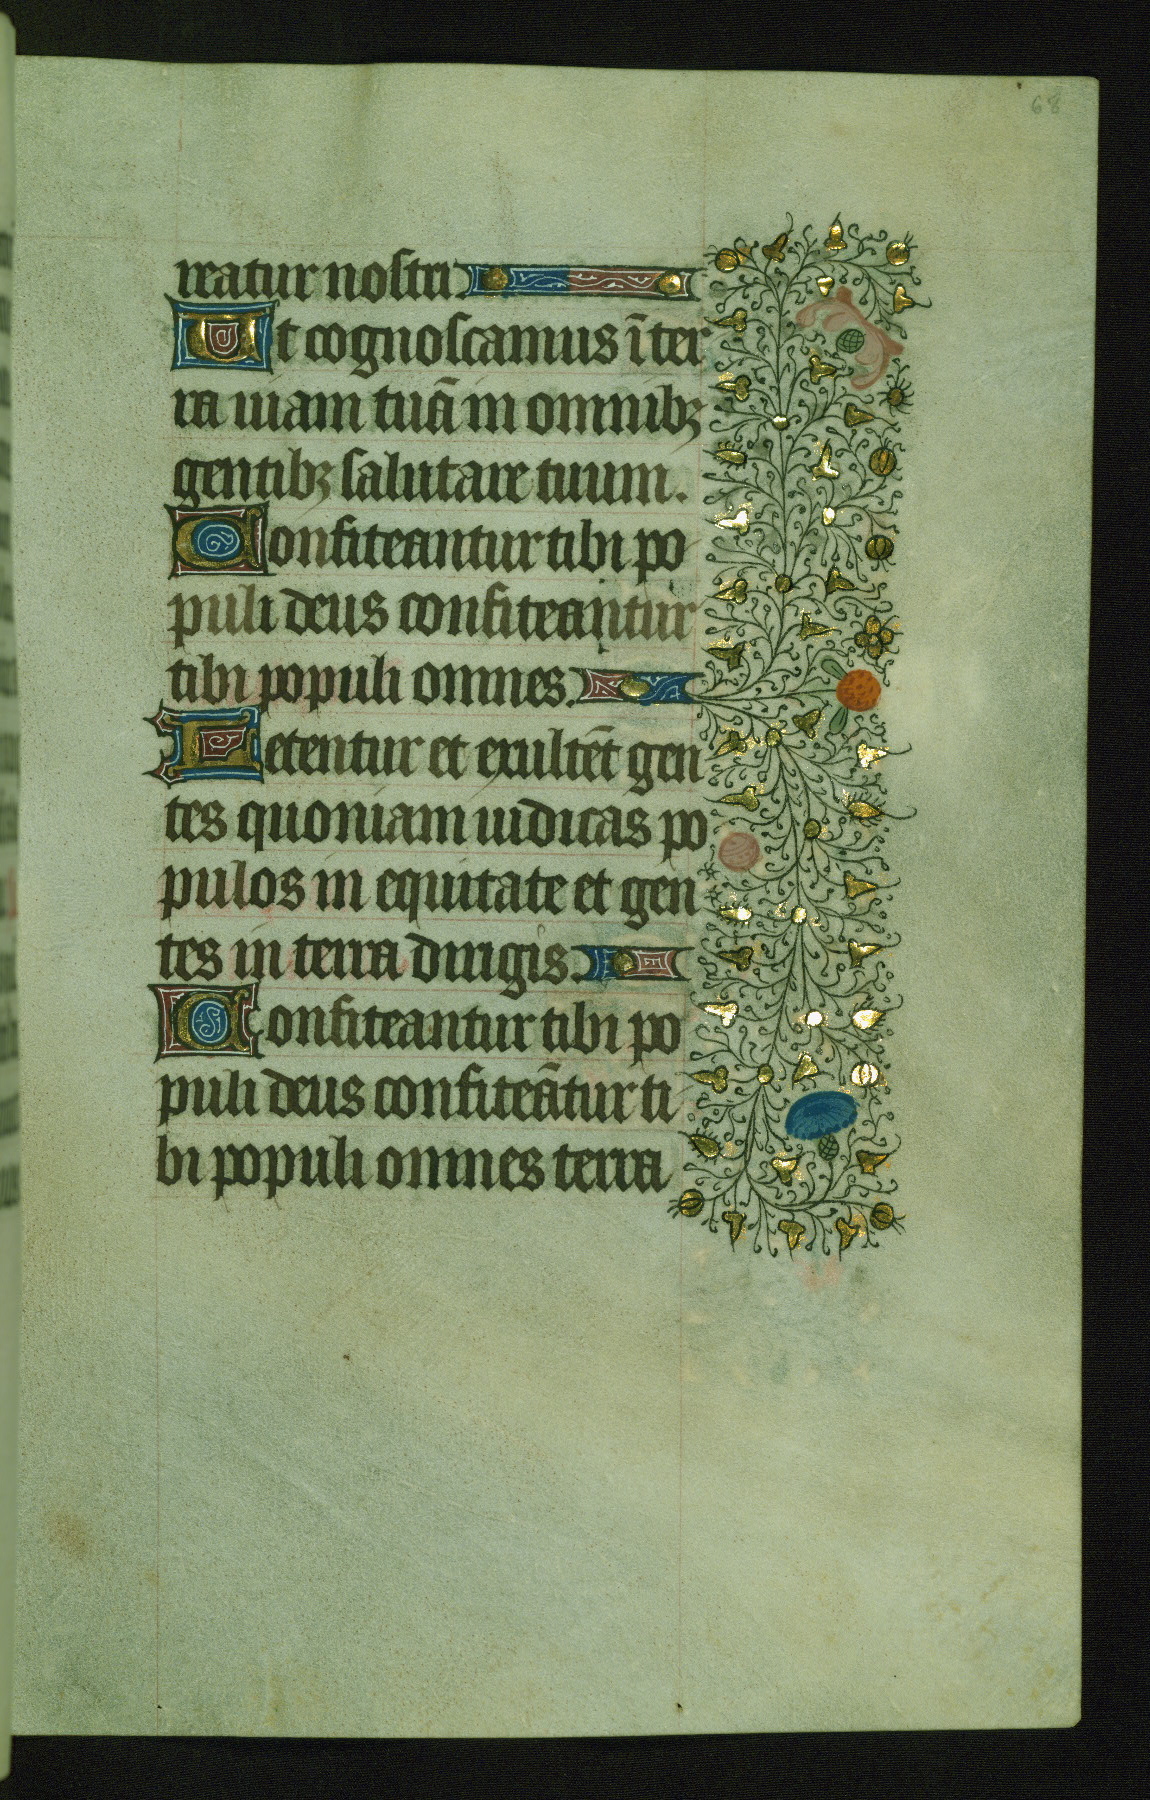 68
reatur nostri.
Ut cognoscamus īter
ra uiam tuā in omnibꝫ
gentibꝫ salutare tuum.
Confiteantur tibi po
puli deus confiteantur
tibi populi omnes.
Letentur et exultēt gen
tes quoniam iudicas po
pulos in equitate et gen
tes in terra dirigis.
Confiteantur tibi po
puli deus confiteātur ti
bi populi omnes terra